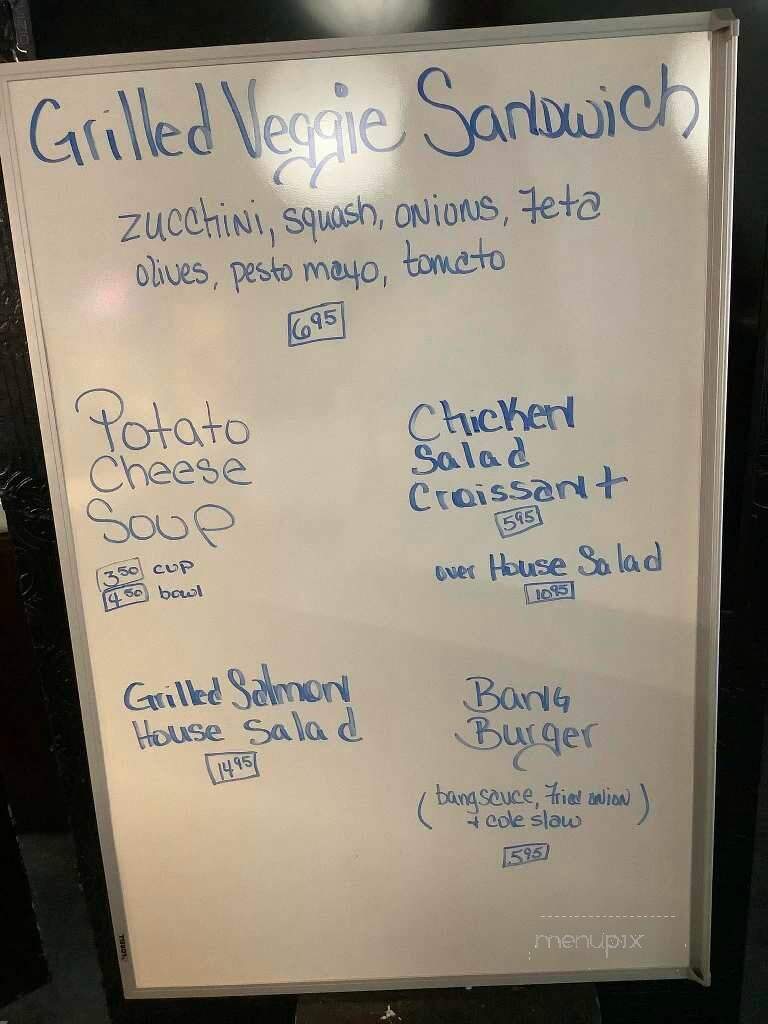 Grilled Veggie Sandwich
zucchini, squash, onions, feta
olives, pesto mayo, tomato
6 95
Potato
Cheese
Soup
3 50 cup
4 50 bowl
Chicken
Salad
Croissant
5 95
over House Salad
10 95
Grilled Salmon
House Salad
14 95
Bang
Burger
(bang sauce, fried onion
+ cole slaw)
5 95
menupix